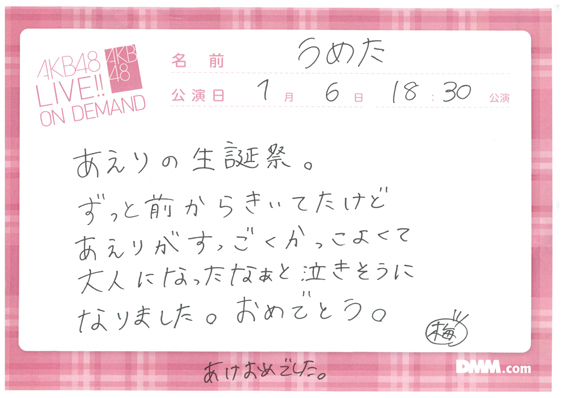 AKB48
LIVE!!
ON DEMAND
AKB
48
名前 うめた
公演日 1月 6日 18:30 公演
あえりの生誕祭。
ずっと前からきいてたけど
あえりがすっごくかっこよくて
大人になったなぁと泣きそうに
なりました。おめでとう。
梅
あけおめでした。
DMM.com